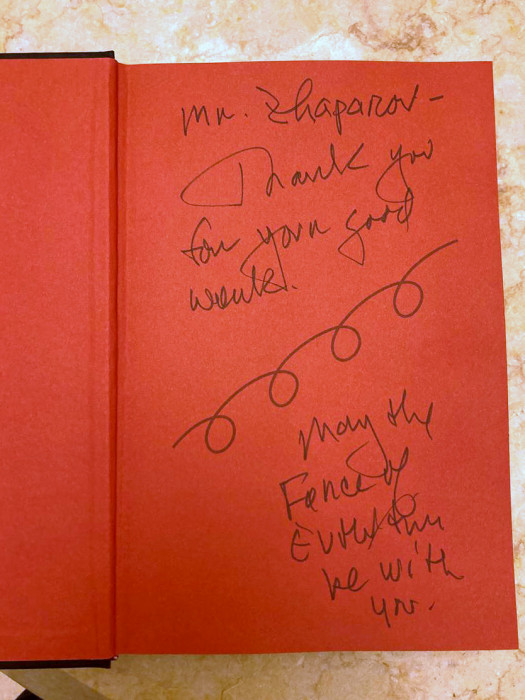 Mr. Zhaparov -
Thank you
for your good
work.
May the
Force of
be with
you.